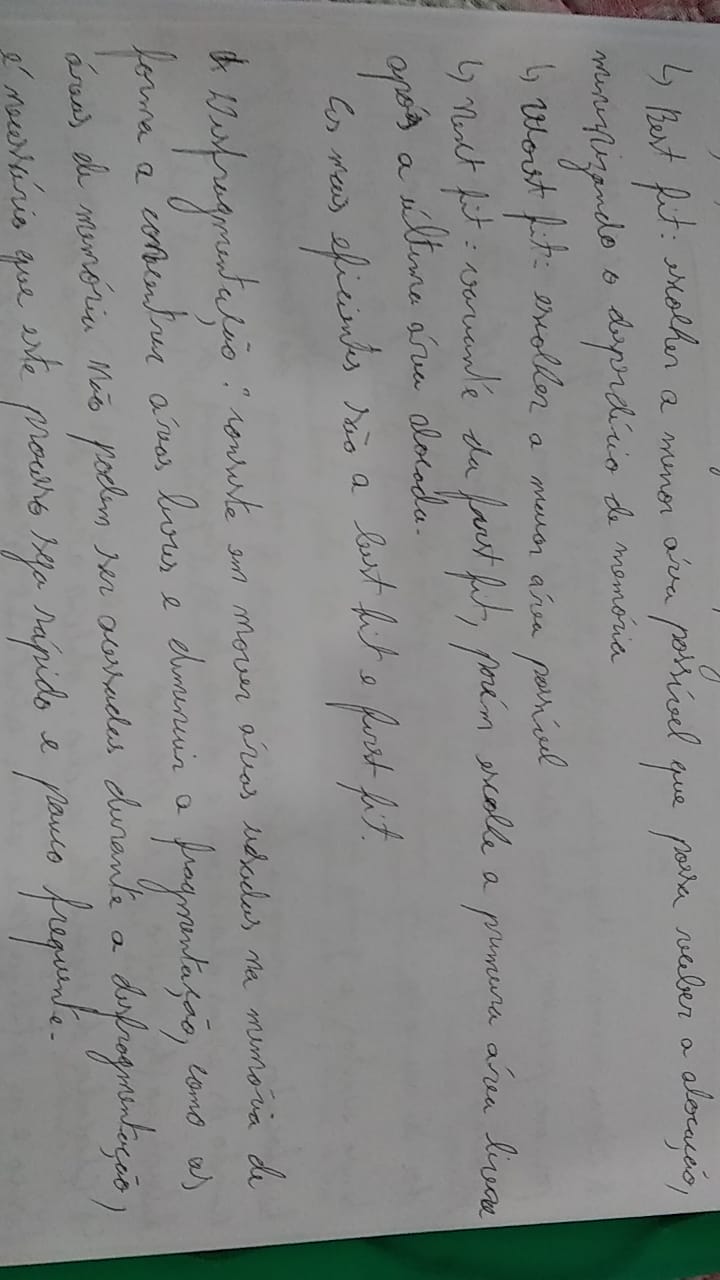 ↳ Best fit: escolher a menor área possível que possa receber a alocação,
minimizando o desperdício de memória
↳ Worst fit: escolher a maior área possível
↳ Next fit: variante da first fit, porém escolhe a primeira área livre
após a última área alocada.
Os mais eficientes são a best fit e first fit.
Desfragmentação: consiste em mover áreas usadas na memória de
forma a concentrar áreas livres e diminuir a fragmentação, como as
áreas de memória não podem ser acessadas durante a desfragmentação,
é necessário que este processo seja rápido e pouco frequente.